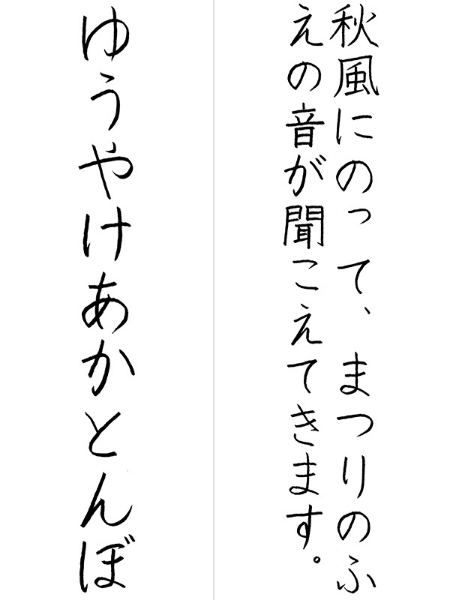 秋風にのって、まつりのふ
えの音が聞こえてきます。
ゆうやけあかとんぼ